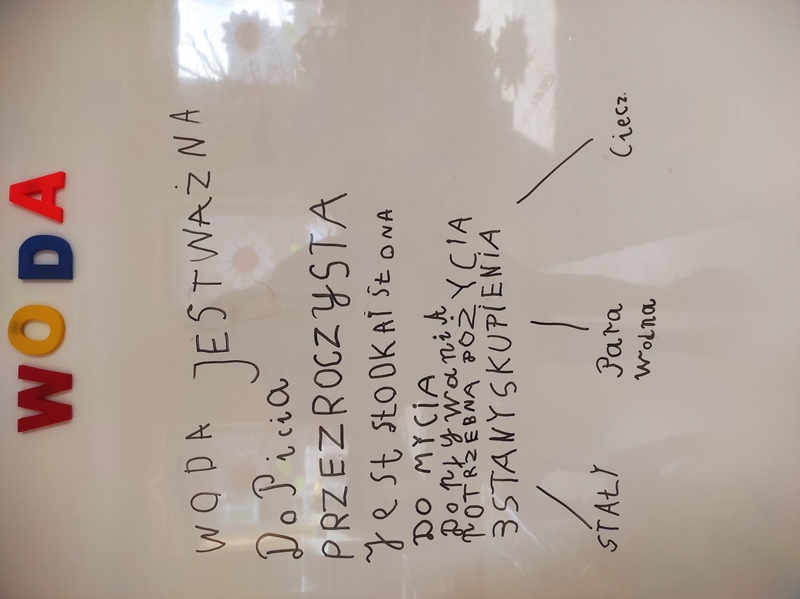 WODA
WODA JESTWAŻNA
DoPicia
PRZEZROCZYSTA
JEST SŁODKA I SŁONA
DO MYCIA
Do PŁYWANIA
POTRZEBNA DO ŻYCIA
3 STANY SKUPIENIA
STAŁY
Para wodna
Ciecz.